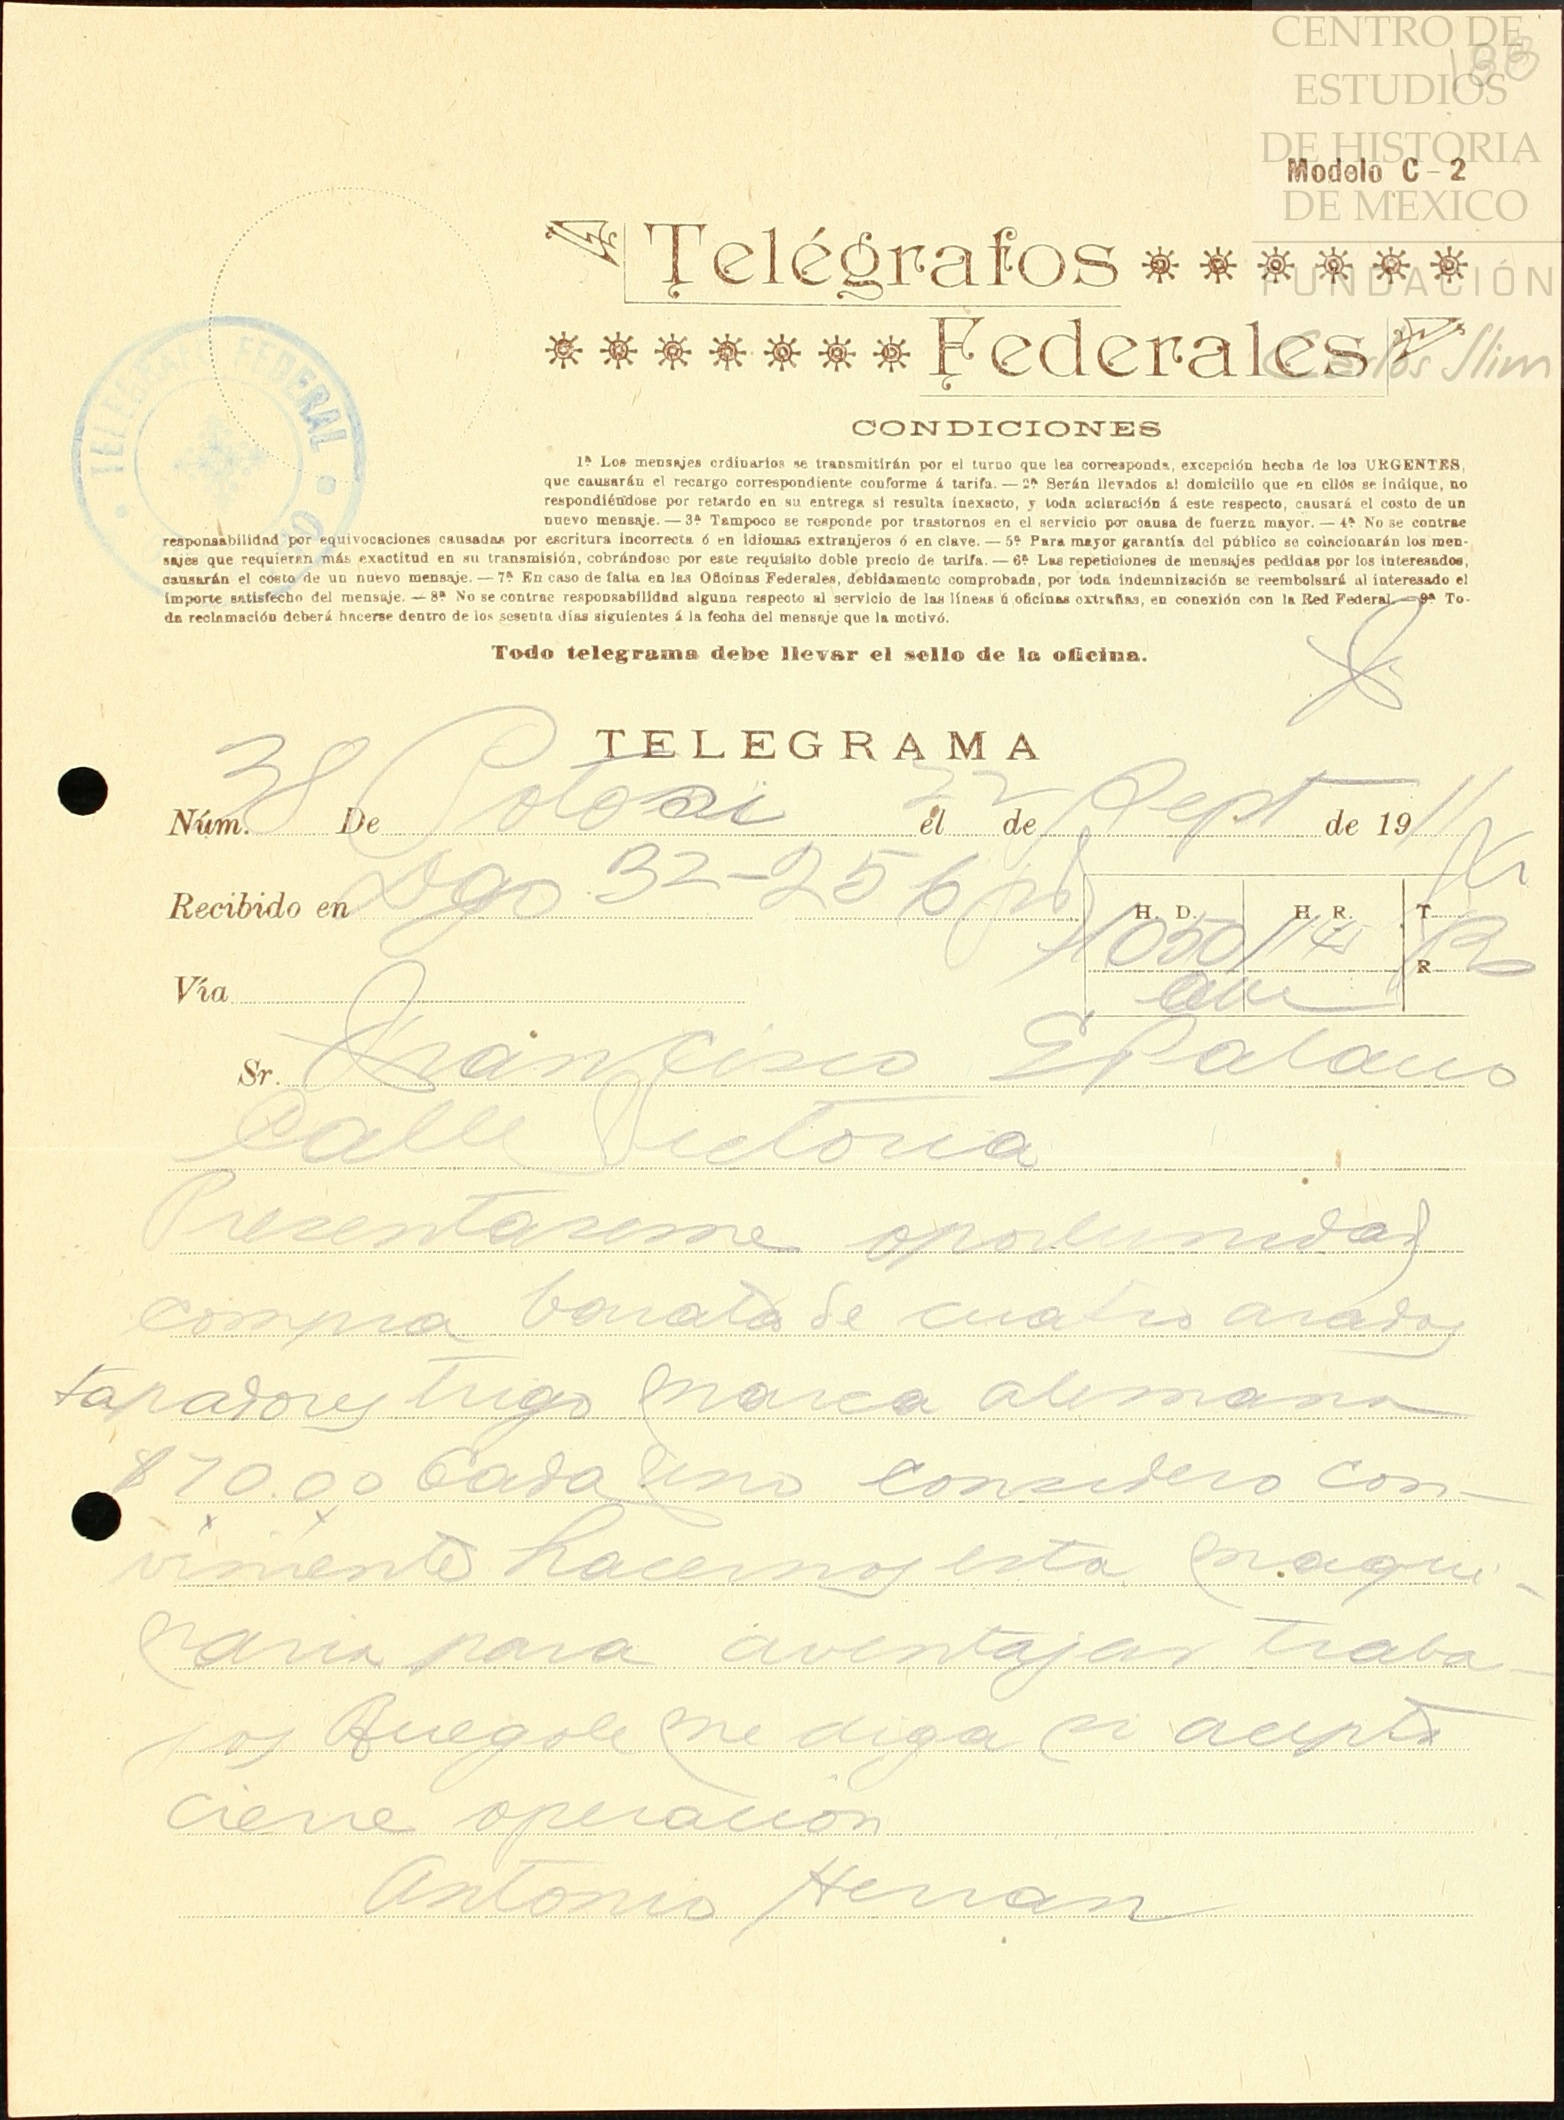 CENTRO DE
ESTUDIOS
DE HISTORIA
DE MEXICO
FUNDACIÓN
Carlos Slim
188
Modelo C-2
Telégrafos
Federales
TELEGRAFO FEDERAL
CONDICIONES
1ª Los mensajes ordinarios se transmitirán por el turno que les corresponda, excepción hecha de los URGENTES,
que causarán el recargo correspondiente conforme á tarifa. — 2ª Serán llevados al domicilio que en ellos se indique, no
respondiéndose por retardo en su entrega si resulta inexacto, y toda aclaración á este respecto, causará el costo de un
nuevo mensaje. — 3ª Tampoco se responde por trastornos en el servicio por causa de fuerza mayor. — 4ª No se contrae
responsabilidad por equivocaciones causadas por escritura incorrecta ó en idiomas extranjeros ó en clave. — 5ª Para mayor garantía del público se colacionarán los men-
sajes que requieran más exactitud en su transmisión, cobrándose por este requisito doble precio de tarifa. — 6ª Las repeticiones de mensajes pedidas por los interesados,
causarán el costo de un nuevo mensaje. — 7ª En caso de falta en las Oficinas Federales, debidamente comprobada, por toda indemnización se reembolsará al interesado el
importe satisfecho del mensaje. — 8ª No se contrae responsabilidad alguna respecto al servicio de las líneas ú oficinas extrañas, en conexión con la Red Federal. — 9ª To-
da reclamación deberá hacerse dentro de los sesenta días siguientes á la fecha del mensaje que la motivó.
Todo telegrama debe llevar el sello de la oficina.
TELEGRAMA
Núm. 38 De Potosi el 22 de Sept de 1911
Recibido en Dgo 32-256
H. D. H. R. T
1050 R
Vía
Sr. Francisco G Palacio
Calle Victoria
Presentaseme oportunidad
compra barata de cuatro arados
tapadores trigo marca alemana
$70.00 Cada uno considero con-
viniente hacernos esta maqui-
naria para aventajar traba-
jos Ruegole me diga si acepta
cierre operación
Antonio Herran